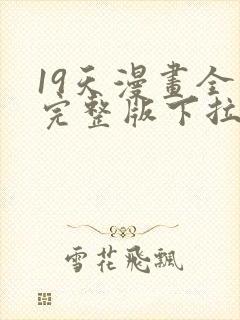 19天漫畫全
完整版下拉
雪花飛飄